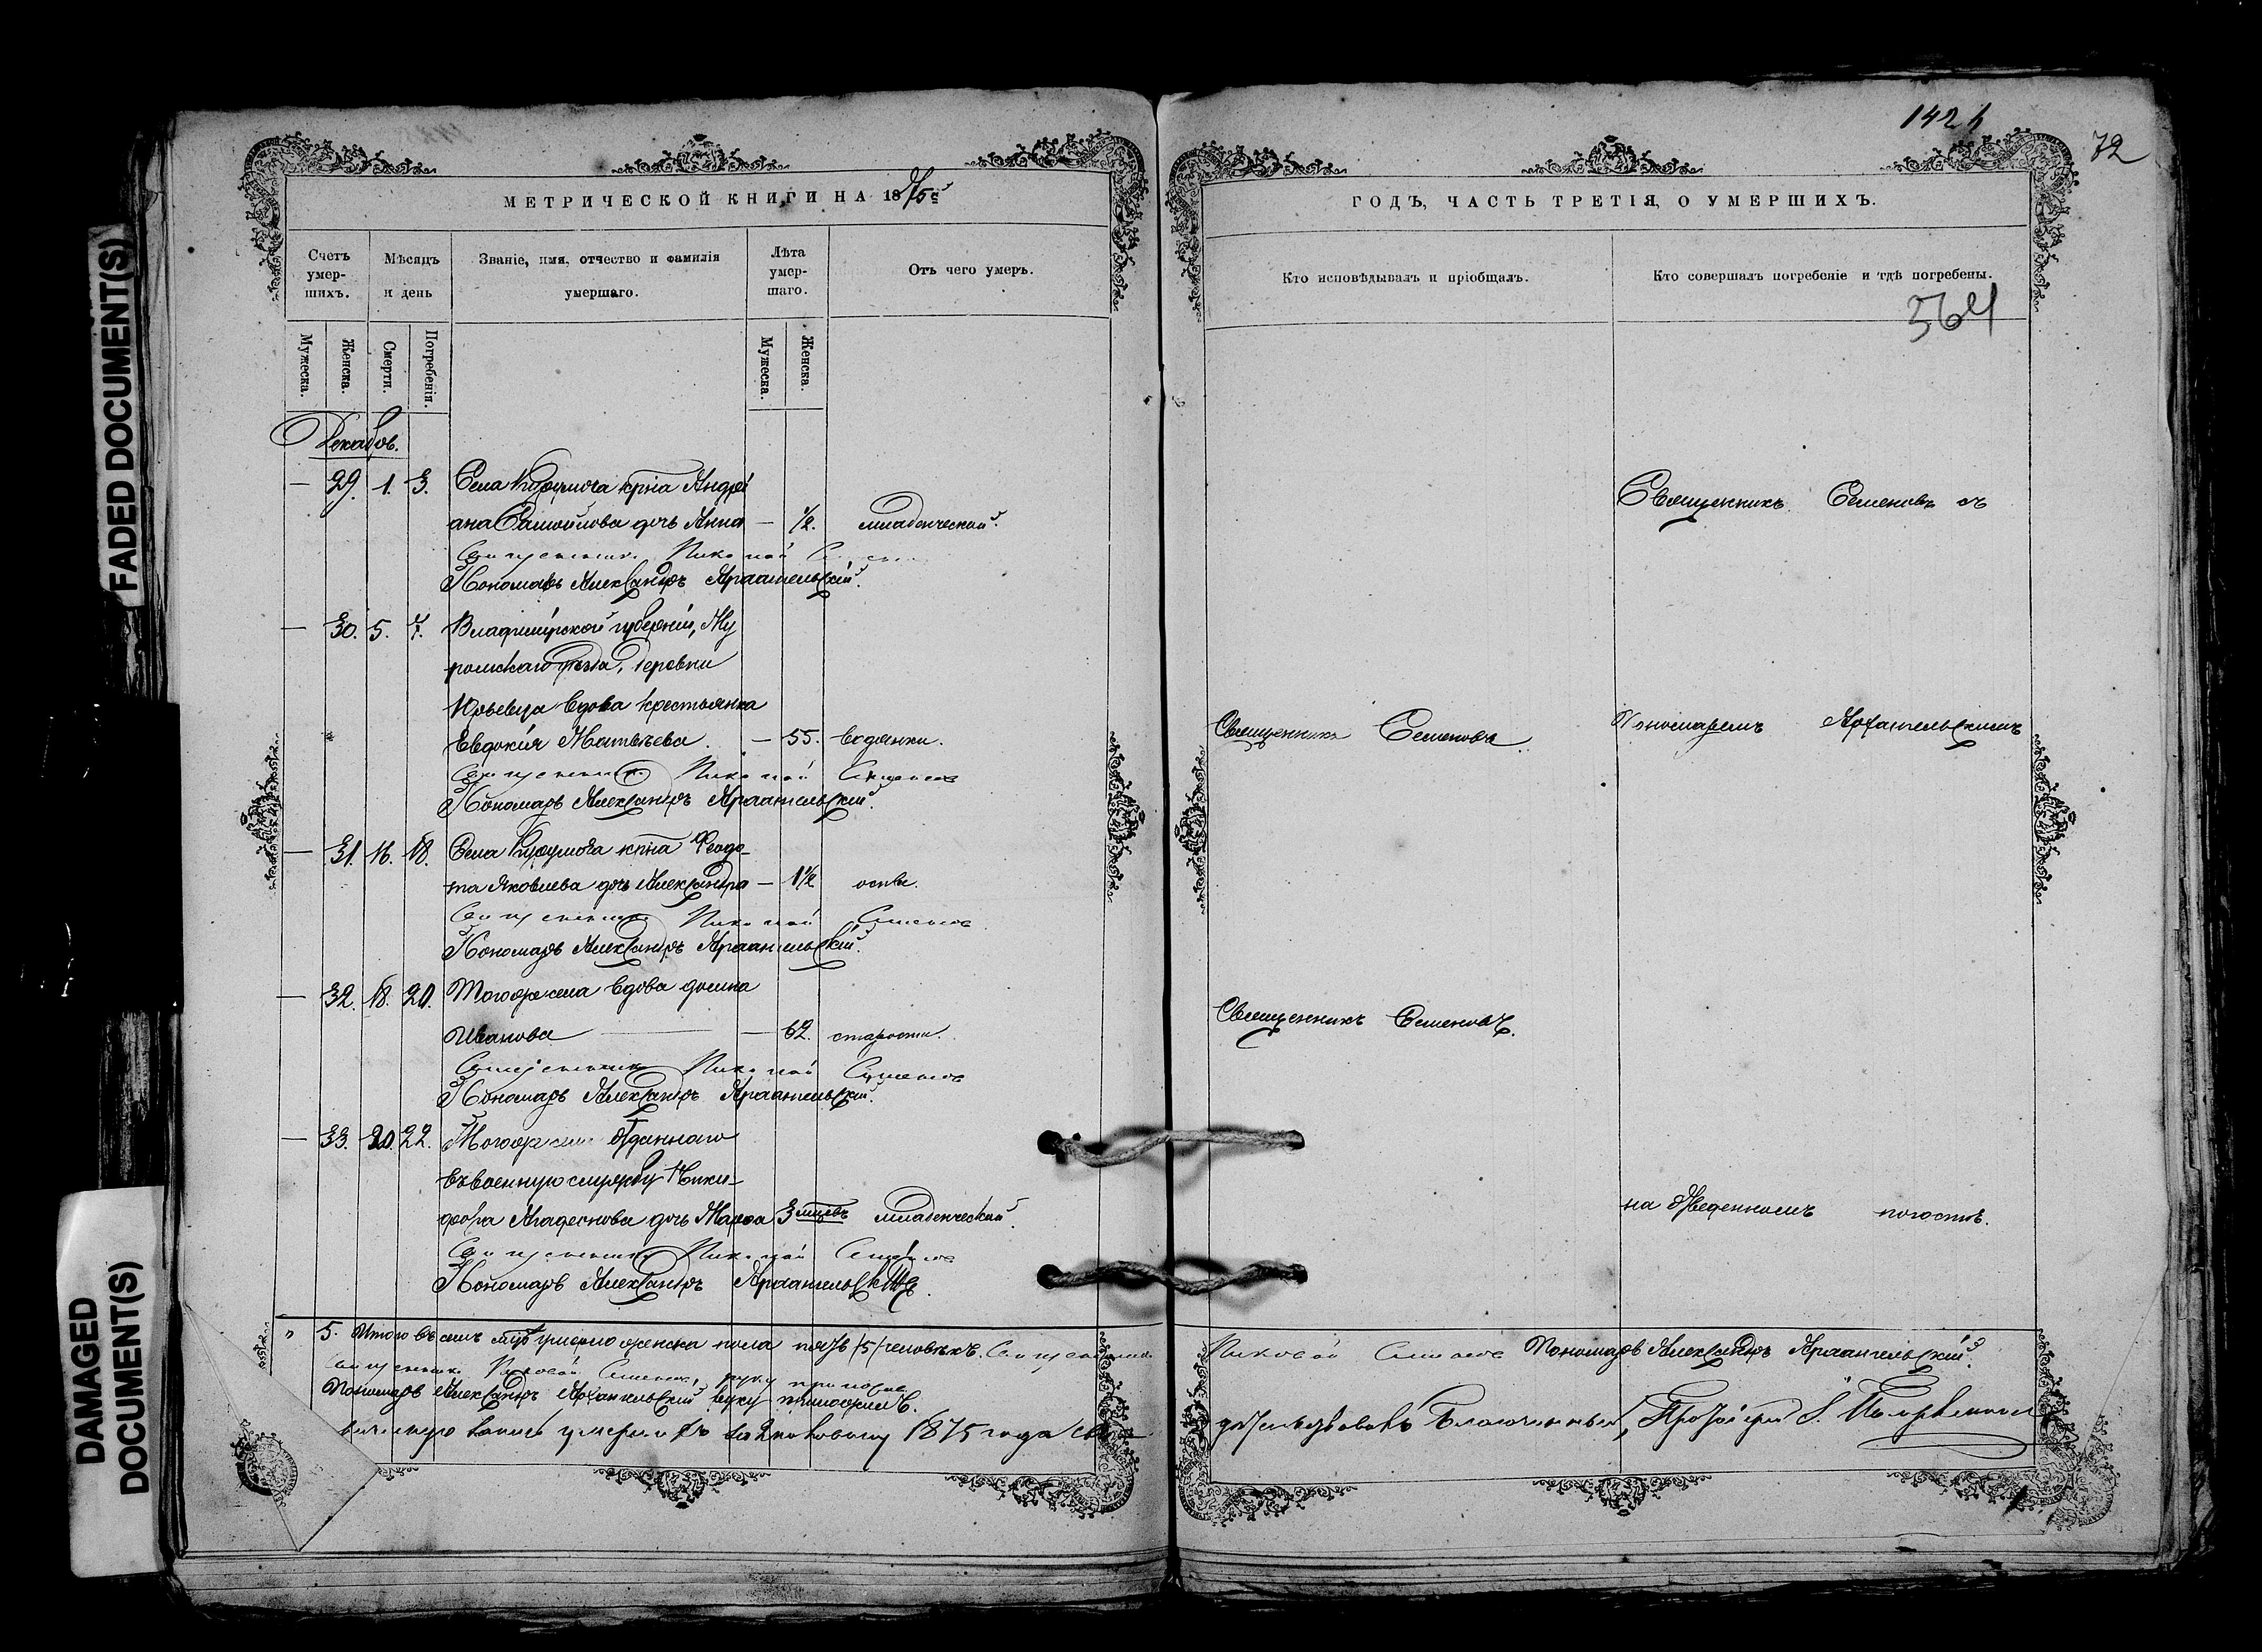 FADED DOCUMENT(S)
DAMAGED
DOCUMENT(S)
МЕТРИЧЕСКОЙ КНИГИ НА 1875й
Счетъ умер-шихъ.
Мѣсяцъ и день
Званіе, имя, отчество и фамилія умершаго.
Лѣта умер-шаго.
Отъ чего умеръ.
Мужеска.
Женска.
Смерти.
Погребенія.
Мужеска.
Женска.
Декабрь.
— 29. 1. 3. Села крна Андрі
ана Самойлова дочь Анна — 1/2. младенческой.
Священникъ Николай
Пономарь Александръ Архангельскій.
— 30. 5. 7. Владимірской губерніи, Му
ромскаго уѣзда, деревни
Юрьевца вдова крестьянка
Евдокія Матвѣева. — 55. водянки.
Священникъ Николай Семеновъ
Пономарь Александръ Архангельскій.
— 31. 16. 18. Села крна Ѳеодо-
та Яковлева дочь Александра — 1 1/2 оспы.
Священникъ Николай Семеновъ
Пономарь Александръ Архангельскій.
— 32. 18. 20. Тогоже села вдова
Иванова — 62. старости.
Священникъ Николай Семеновъ
Пономарь Александръ Архангельскій.
— 33. 20. 22. Тогоже села отданнаго
въ военную службу Ники-
фора дочь Марѳа 3 мцевъ младенческой.
Священникъ Николай Семеновъ
Пономарь Александръ Архангельскій.
" 5. Итого въ семъ мцѣ умерло женска пола пять /5/ человѣкъ. Священникъ
Священникъ Николай Семеновъ, руку приложилъ
Пономарь Александръ Архангельскій руку приложилъ.
запись умершихъ 1875 года
1421
72
ГОДЪ, ЧАСТЬ ТРЕТІЯ, О УМЕРШИХЪ.
Кто исповѣдывалъ и пріобщалъ.
Кто совершалъ погребеніе и гдѣ погребены.
564
Священникъ Семеновъ съ
Священникъ Семеновъ
Пономаремъ Архангельскимъ
Священникъ Семеновъ.
на отведенномъ погостѣ.
Николай Семеновъ Пономарь Александръ Архангельскій.
свидѣтельствовалъ Благочинный, Протоіерей